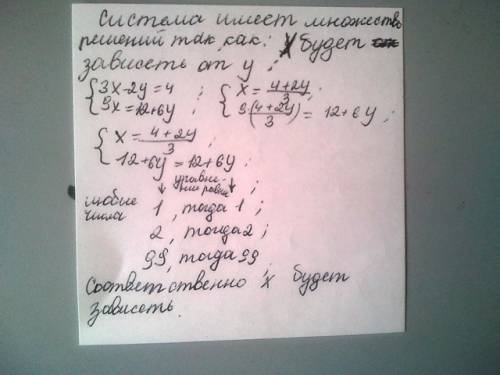 Система имеет множество
решений так, как: X будет
зависеть от y ;
{3x-2y=4 ; {x=4+2y/3 ;
{9x=12+6y {9·(4+2y)/3 = 12+6y ;
{x=4+2y/3
{12+6y=12+6y ;
уравне-
ния равны
любые
числа 1, тогда 1 ;
2, тогда 2 ;
99, тогда 99 ;
Соответственно x будет
зависеть.